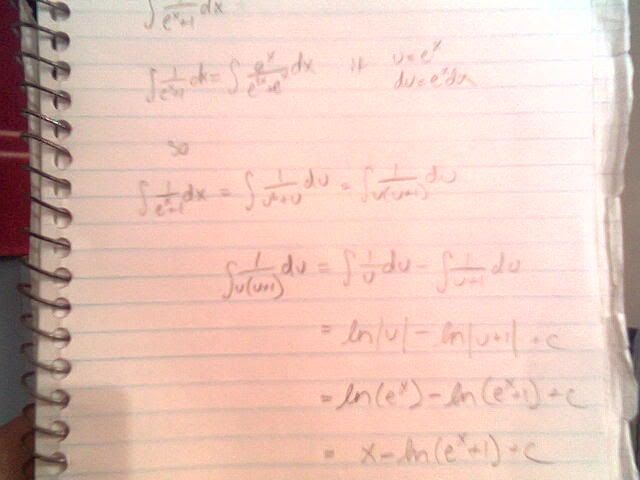 ∫ 1/(e^x+1) dx
∫ 1/(e^x+1) dx = ∫ e^x/(e^2x+e^x) dx if u=e^x
du=e^x dx
so
∫ 1/(e^x+1) dx = ∫ 1/(u²+u) du = ∫ 1/(u(u+1)) du
∫ 1/(u(u+1)) du = ∫ 1/u du - ∫ 1/(u+1) du
= ln|u| - ln|u+1| + c
= ln(e^x) - ln(e^x+1) + c
= x - ln(e^x+1) + c